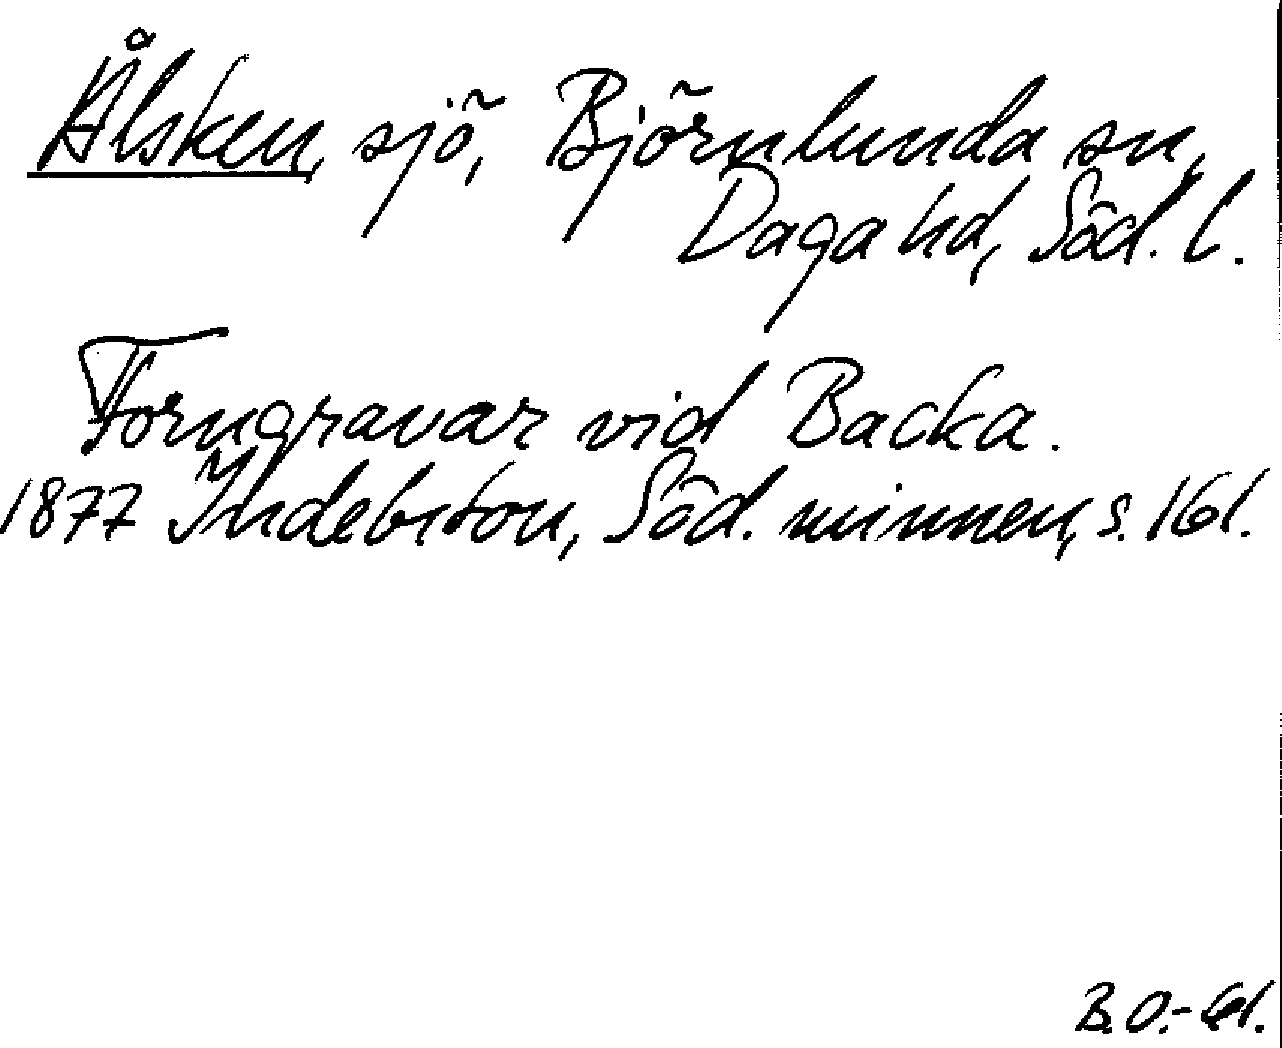 Ålsken, sjö, Björnlunda sn,
Daga hd, Söd. l.
Forngravar vid Backa.
1877 Indebetou, Söd. minnen, s. 161.
B.O.-61.